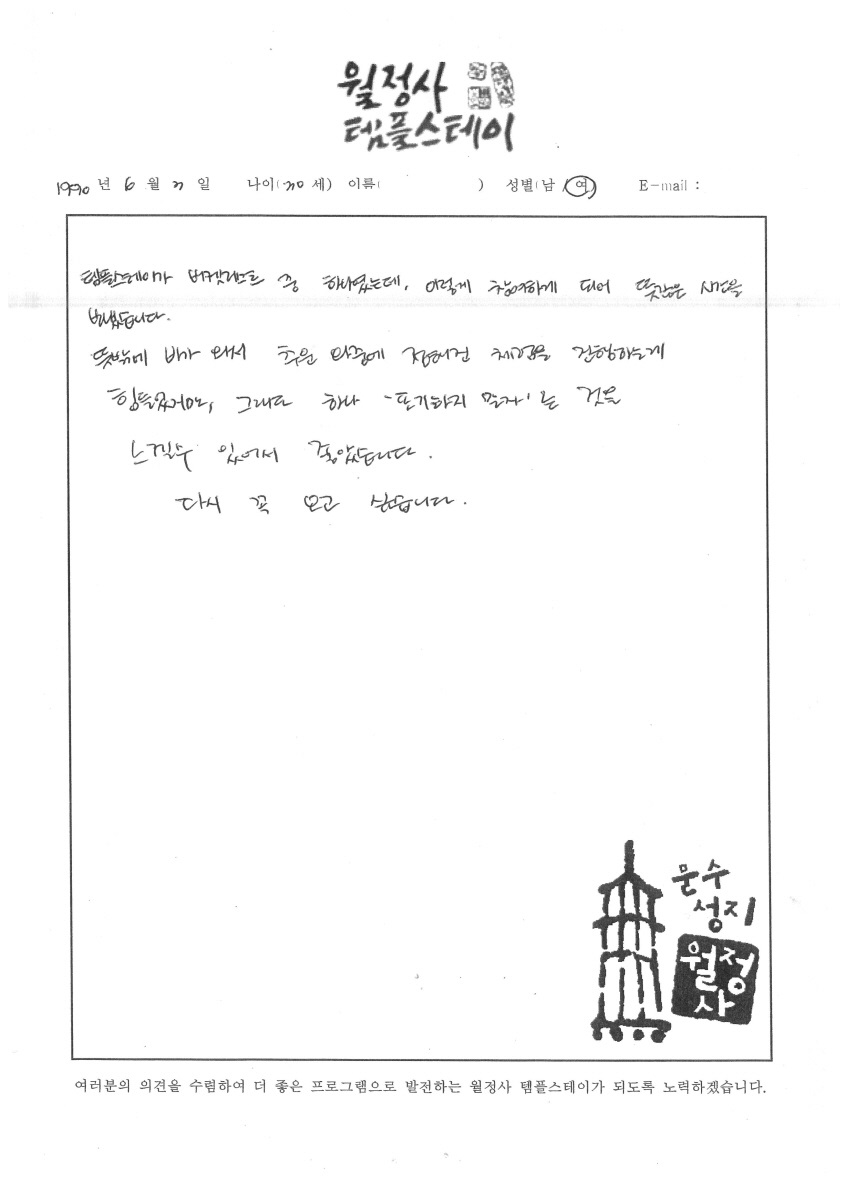 월정사
템플스테이
1990 년 6 월 일 나이( 세) 이름( ) 성별(남, 여) E-mail :
템플스테이가 버킷리스트 중 하나였는데, 이렇게 참여하게 되어 뜻깊은 시간을
보냈습니다.
뜻밖에 비가 와서 추운 와중에 정해진 체험을 진행하는게
힘들었어요, 그래도 하나 '포기하지 말자'는 것을
느낄수 있어서 좋았습니다.
다시 꼭 오고 싶습니다.
문수
성지
월정
사
여러분의 의견을 수렴하여 더 좋은 프로그램으로 발전하는 월정사 템플스테이가 되도록 노력하겠습니다.